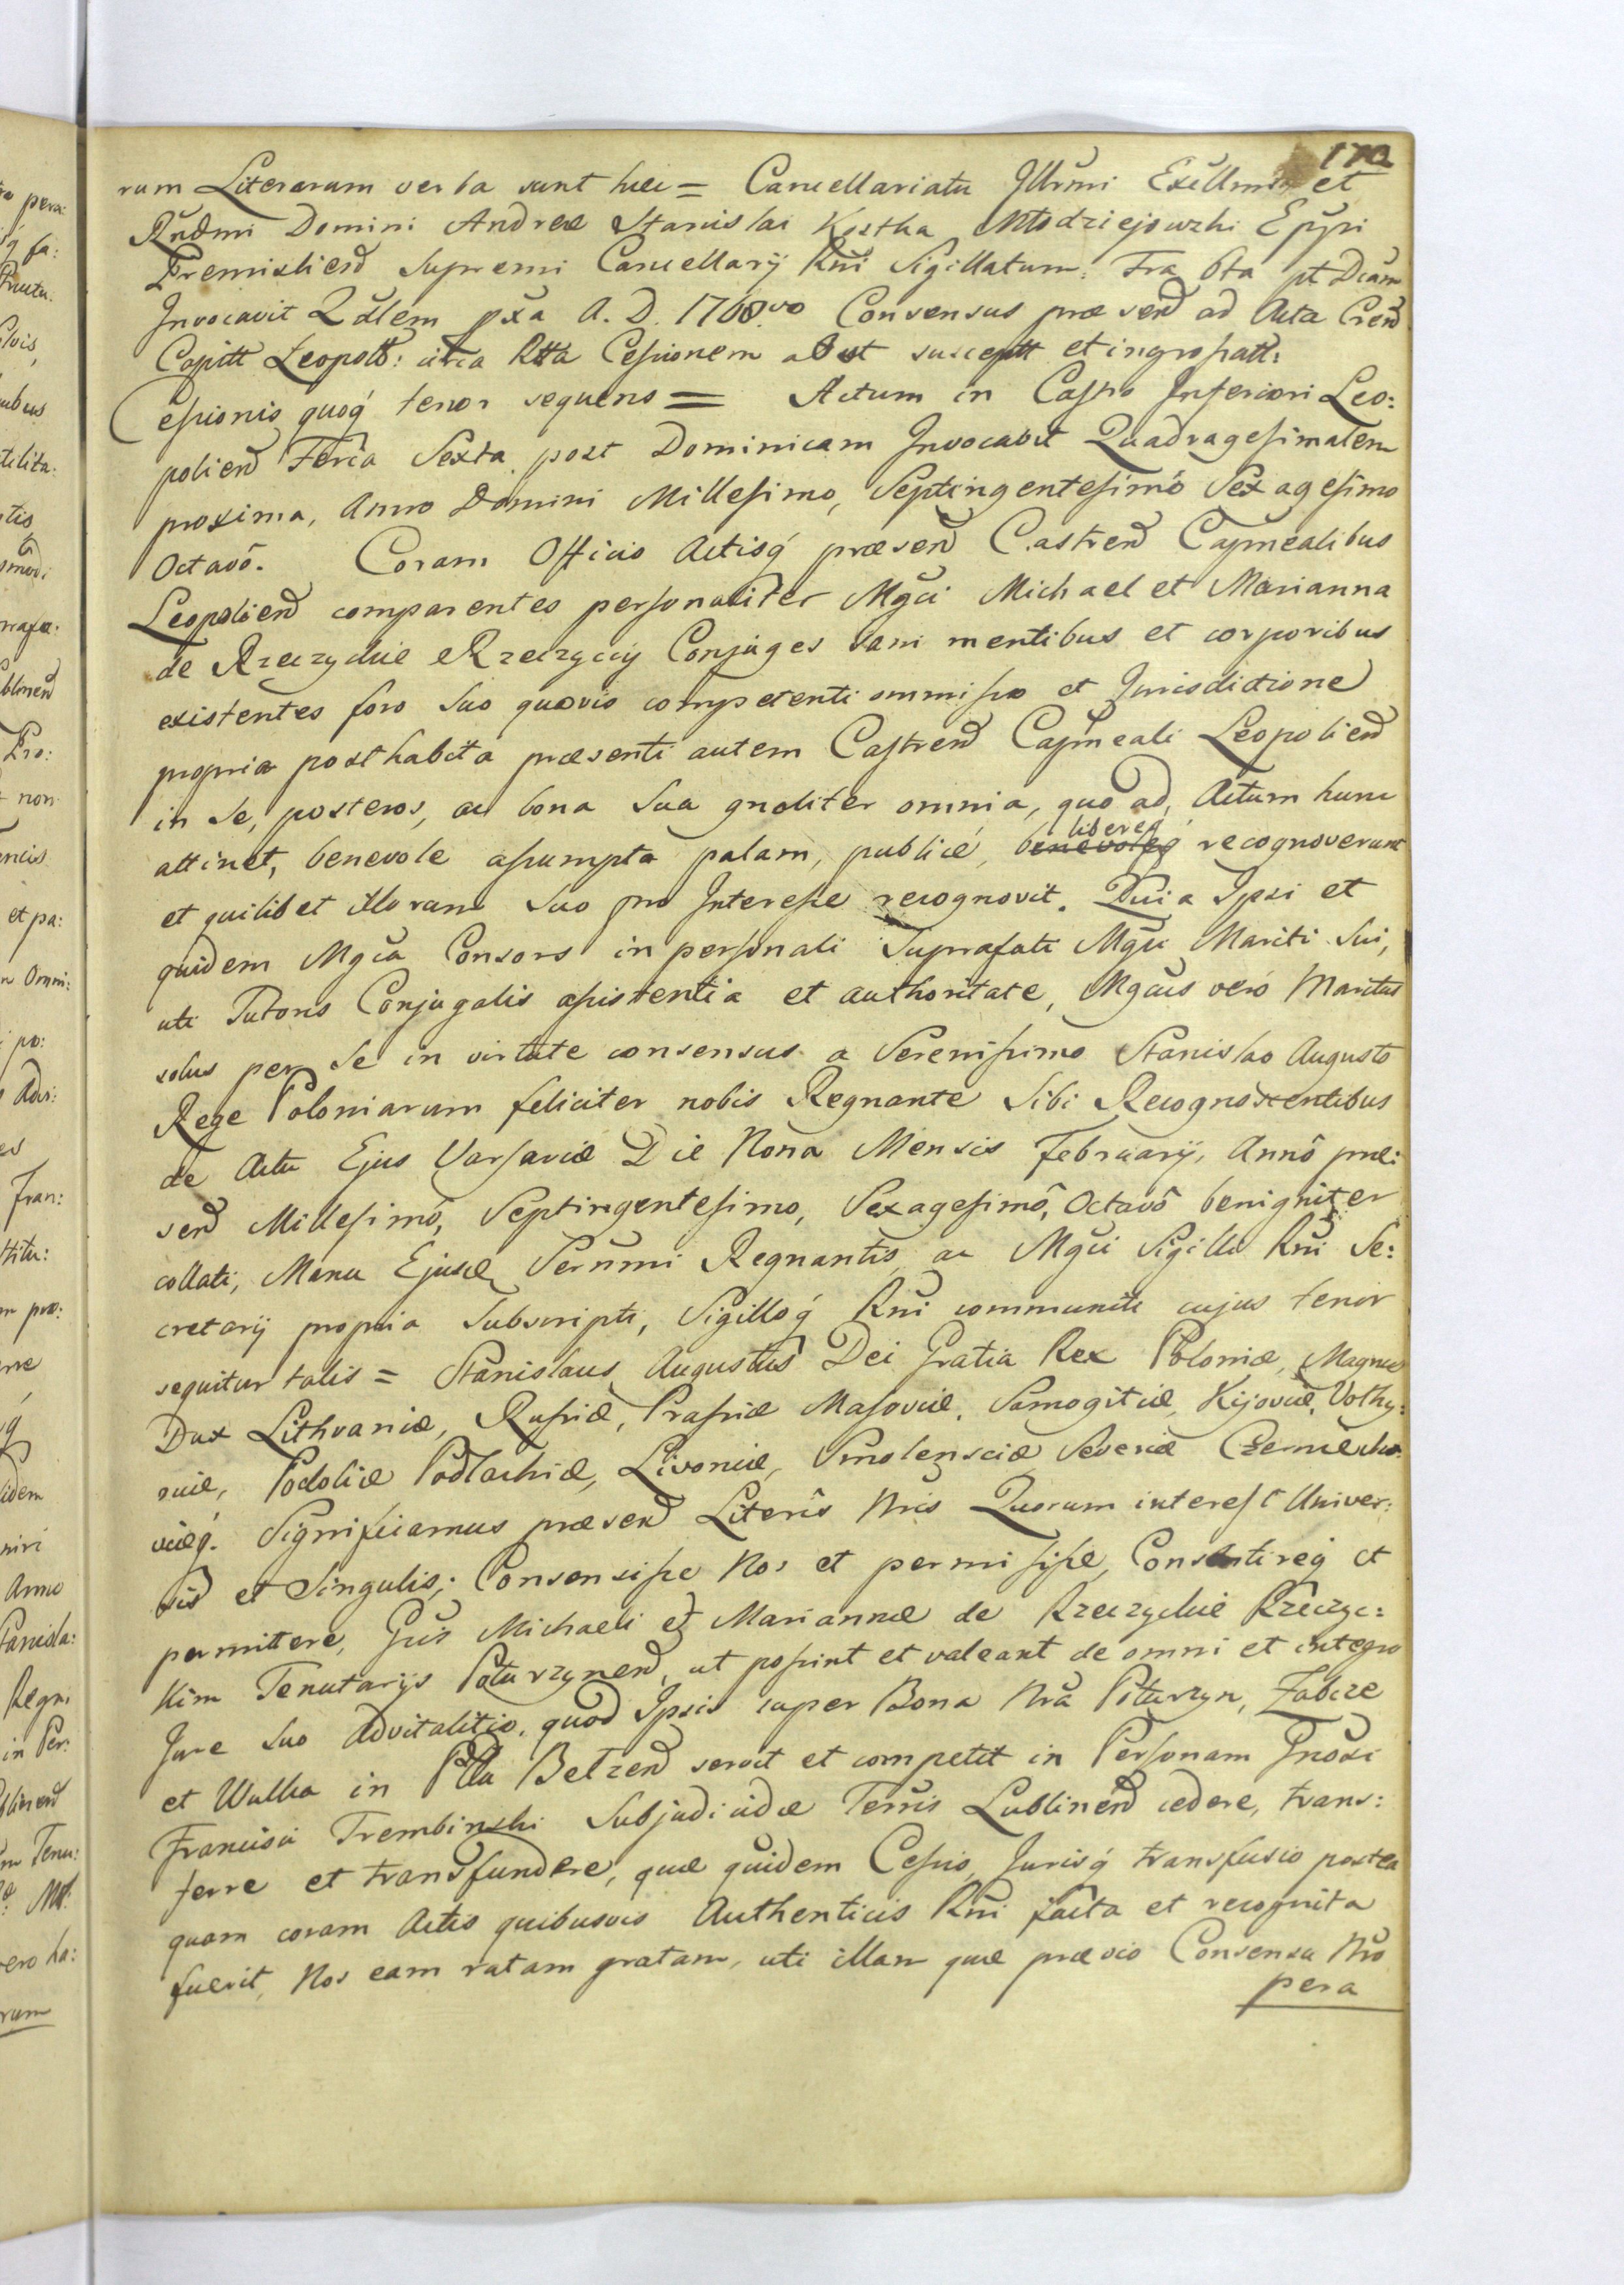 172
rum Literarum verba sunt haec = Cancellariatu Jllrmi Excllmi et
Rndmi Domini Andreæ Stanislai Kostka Młodziejowski Eppi
Premisliens Supremi Cancellarij Rni Sigillatum. Fra 6ta pt Dcam
Jnvocavit Qdlem pxa A. D. 1768vo Consensus præsens ad Acta Cren
Capitt Leopoltt: circa Rtta Cessionem abest suscептt et ingrossatt:
Cessionis quoq́ tenor sequens = Actum in Castro Jnferiori Leo:
polien Feria Sexta post Dominicam Jnvocavit Quadragesimalem
proxima, Anno Domini Millesimo, Septingentesimô Sexagesimo
Octavô. Coram Officio Actisq́ præsen Castren Capnealibus
Leopolien comparentes personaliter Mgci Michael et Marianna
de Rzeczyckie Rzeczyccy Conjuges sani mentibus et corporibus
existentes foro suo quovis competenti ommisso et Jurisdictione
propria posthabita præsenti autem Castren Capneali Leopolien
in se, posteros, ac bona sua gnaliter omnia, quo ad, Actum hunc
attinet, benevole assumpta palam, publicé, benevoleq́ libereq́ recognoverunt
et quilibet illorum suo pro Jnteresse recognovit. Quia Jpsi et
quidem Mgca Consors in personali Suprafati Mgci Mariti Sui,
uti Tutoris Conjugalis assistentia et authoritate, Mgcus veró Maritus
solus per se in virtute consensus a Serenissimo Stanislao Augusto
Rege Poloniarum feliciter nobis Regnante Sibi Recognoscentibus
de Actu Ejus Varsaviæ Die Nona Mensis Februarij, Annô præ:
sen Millesimô, Septingentesimo, Sexagesimô, Octavô benigniter
collati, Manu Ejusd Sernmi Regnantis, ac Mgci Sigilli Rni Se:
cretarij propria Subscripti, Sigilloq́ Rni communiti cujus tenor
sequitur talis = Stanislaus Augustus Dei Gratia Rex Poloniæ, Magnus
Dux Lithvaniæ, Russiæ, Prussiæ Masoviæ, Samogitiæ, Kijoviæ, Volhy:
niæ, Podoliæ Podlachiæ, Livoniæ, Smolensciæ Severiæ Czerniecho:
viæq́. Significamus præsen Literis Nris Quorum interest Univer:
sis et Singulis; Consensisse Nos et permisisse, Consentireq́ et
permittere, Gsis Michaeli et Mariannæ de Rzeczyckie Rzeczyc:
kim Tenutarijs Poturzynen, ut possint et valeant de omni et integro
Jure suo Advitalitio, quod Jpsis super Bona Nra Poturzyn, Zabcze
et Wulka in Plla Belzen servit et competit in Personam Gnosi
Francisci Trembinski Subjudicidæ Terris Lublinen cedere, trans:
ferre et transfundere, quæ quidem Cessio, Jurisq́ transfusio postea
quam coram Actis quibusvis Authenticis Rni facta et recognita
fuerit, Nos eam ratam gratam, uti illam quæ prævio Consensu Nro
pera